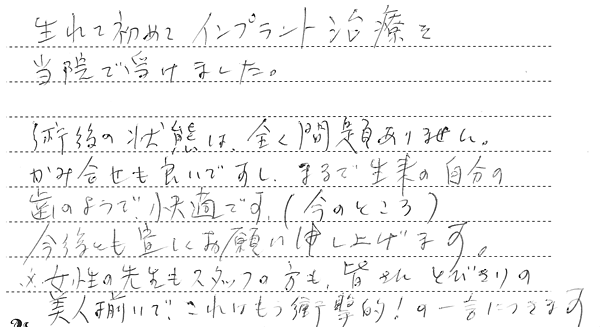 生れて初めてインプラント治療を
当院で受けました。
術後の状態は、全く問題ありません。
かみ合せも良いですし、まるで生来の自分の
歯のようで、快適です。(今のところ)
今後とも宜しくお願い申し上げます。
※女性の先生もスタッフの方も、皆さんとびきりの
美人揃いで、これはもう衝撃的!の一言につきます